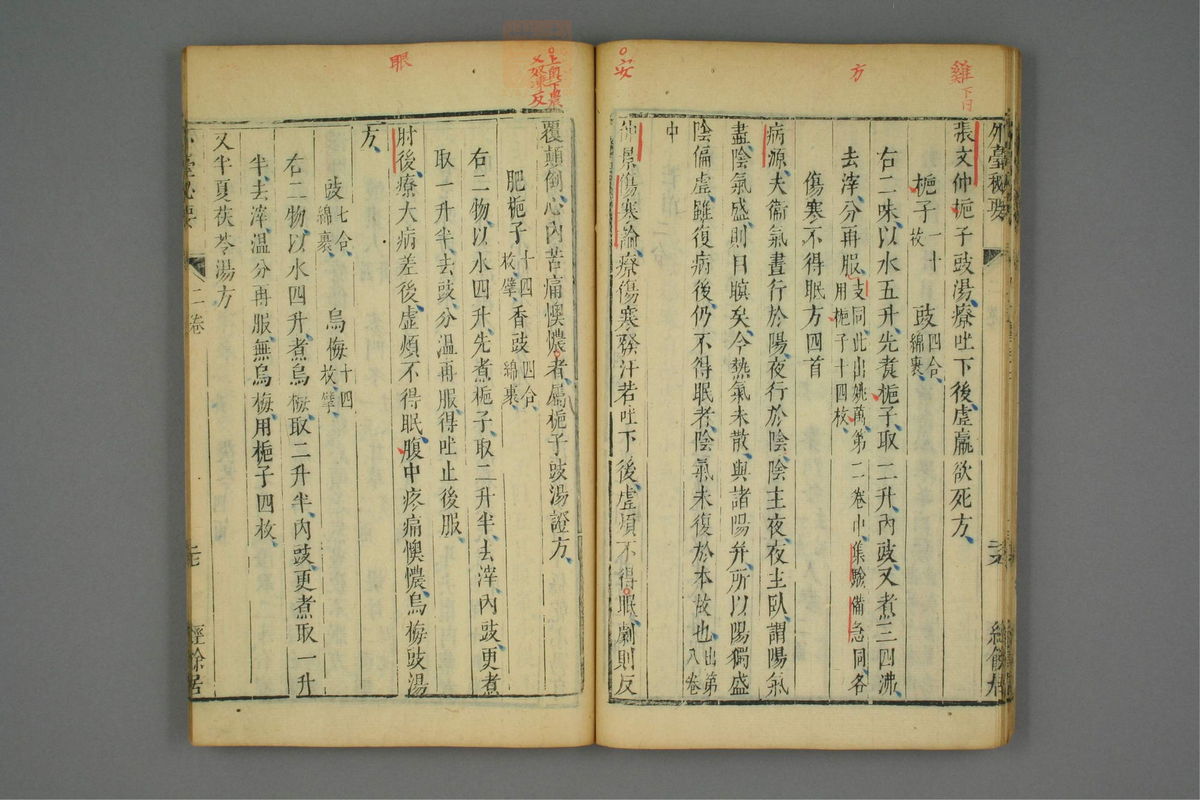 雞下同
方
安
外臺秘要
張文仲梔子豉湯療吐下後虛羸欲死方
梔子一十枚 豉四合綿裹
右二味以水五升先煮梔子取二升內豉又煮三四沸
去滓分再服支同此出姚萬第二卷中集驗備急同各用梔子十四枚
傷寒不得眠方四首
病源夫衞氣晝行於陽夜行於陰陰主夜夜主臥謂陽氣
盡陰氣盛則目瞑矣今熱氣未散與諸陽并所以陽獨盛
陰偏虛雖復病後仍不得眠者陰氣未復於本故也出第八卷
中
仲景傷寒論療傷寒發汗若吐下後虛煩不得眠劇則反
經餘居
眼
覆顛倒心內苦痛懊憹者屬梔子豉湯證方
肥梔子十四枚擘 香豉四合綿裹
右二物以水四升先煮梔子取二升半去滓內豉更煮
取一升半去豉分溫再服得吐止後服
肘後療大病差後虛煩不得眠腹中疼痛懊憹烏梅豉湯
方
豉七合綿裹 烏梅十四枚擘
右二物以水四升煮烏梅取二升半內豉更煮取一升
半去滓溫分再服無烏梅用梔子四枚
又半夏茯苓湯方
外臺秘要
二卷
經餘居